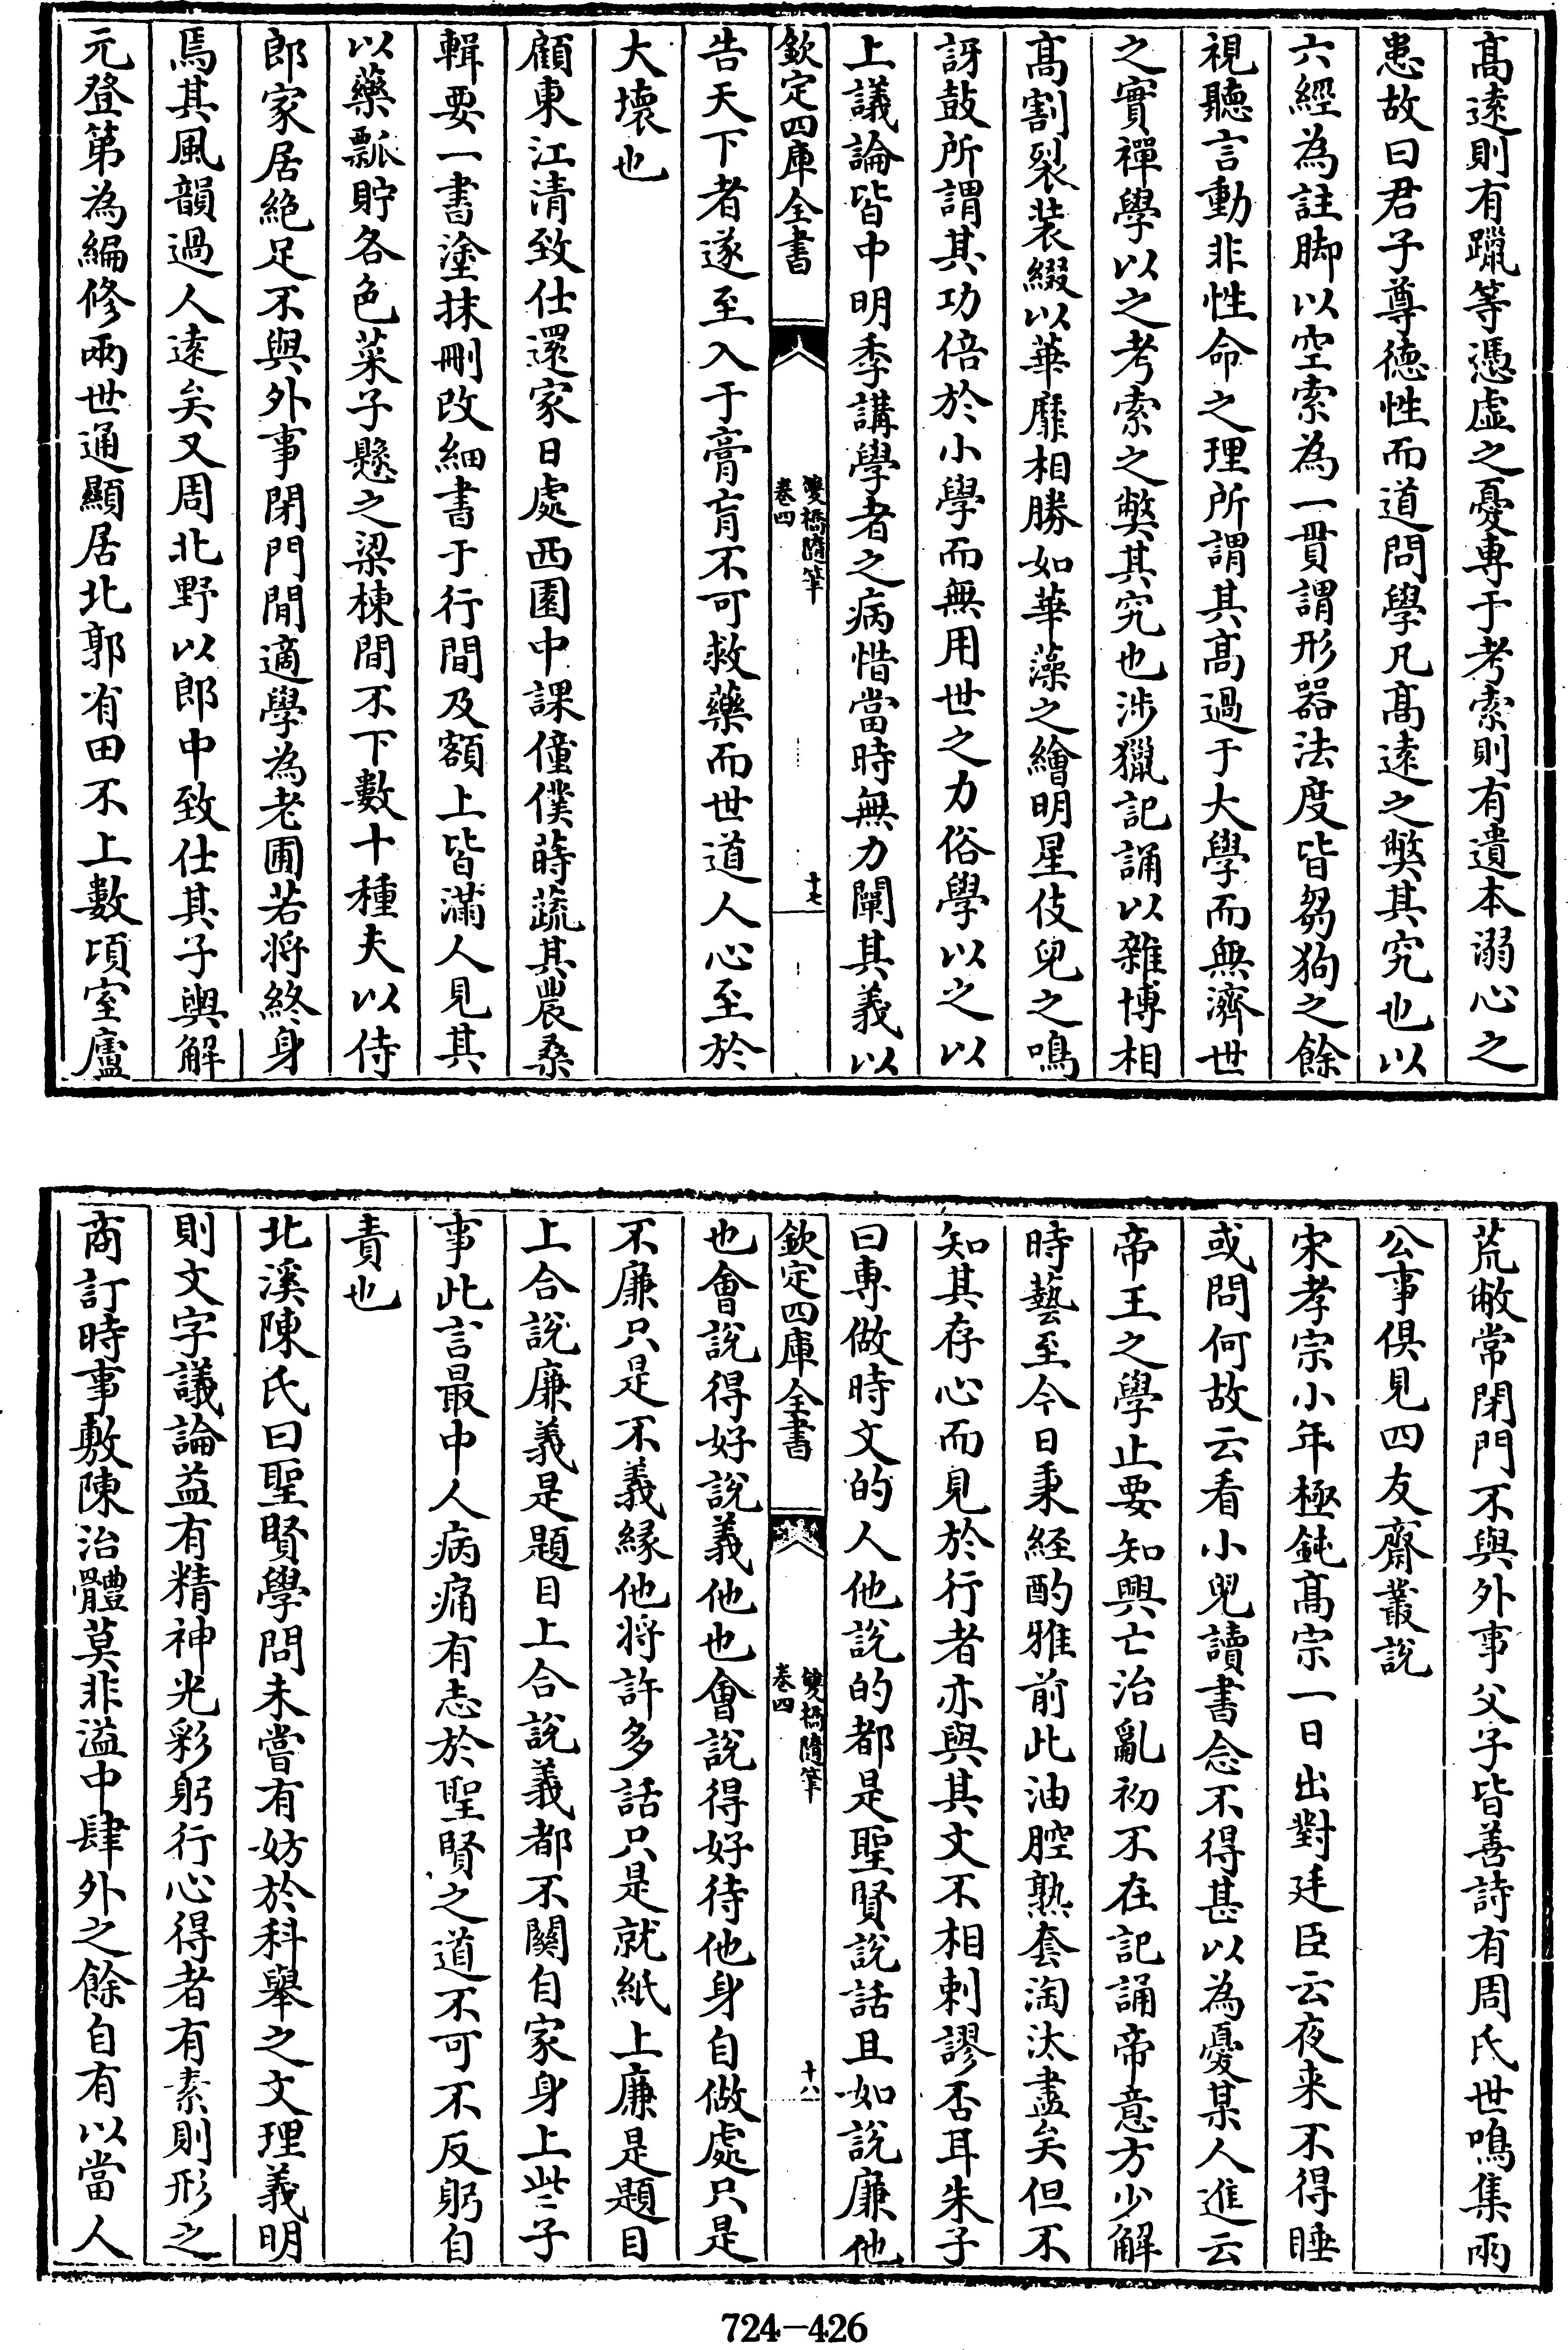 高遠則有躐等憑虛之憂専于考索則有遺本溺心之
患故曰君子尊徳性而道問學凡高遠之弊其究也以
六經為註脚以空索為一貫謂形器法度皆芻狗之餘
視聽言動非性命之理所謂其高過于大學而無濟世
之實禪學以之考索之弊其究也渉獵記誦以雜博相
高割裂装綴以華靡相勝如華藻之繪明星伎兒之鳴
訝鼓所謂其功倍於小學而無用世之力俗學以之以
上議論皆中明季講學者之病惜當時無力闡其義以
欽定四庫全書
雙橋隨筆
卷四
十七
告天下者遂至入于膏肓不可救藥而世道人心至於
大壞也
顧東江清致仕還家日處西園中課僮僕蒔蔬其農桑
輯要一書塗抹刪改細書于行間及額上皆滿人見其
以藥瓢貯各色菜子懸之梁棟間不下數十種夫以侍
郎家居絶足不與外事閉門閒適學為老圃若將終身
焉其風韻過人遠矣又周北野以郎中致仕其子輿解
元登第為編修兩世通顯居北郭有田不上數頃室廬
荒敝常閉門不與外事父子皆善詩有周氏世鳴集兩
公事俱見四友齋叢說
宋孝宗小年極鈍高宗一日出對廷臣云夜来不得睡
或問何故云看小兒讀書念不得甚以為憂某人進云
帝王之學止要知興亡治亂初不在記誦帝意方少解
時藝至今日秉経酌雅前此油腔熟套淘汰盡矣但不
知其存心而見於行者亦與其文不相刺謬否耳朱子
曰専做時文的人他說的都是聖賢說話且如說廉他
欽定四庫全書
雙橋隨筆
卷四
十八
也會說得好說義他也會說得好待他身自做處只是
不廉只是不義緣他將許多話只是就紙上廉是題目
上合說廉義是題目上合說義都不關自家身上些子
事此言最中人病痛有志於聖賢之道不可不反躬自
責也
北溪陳氏曰聖賢學問未嘗有妨於科舉之文理義明
則文字議論益有精神光彩躬行心得者有素則形之
商訂時事敷陳治體莫非溢中肆外之餘自有以當人
724-426